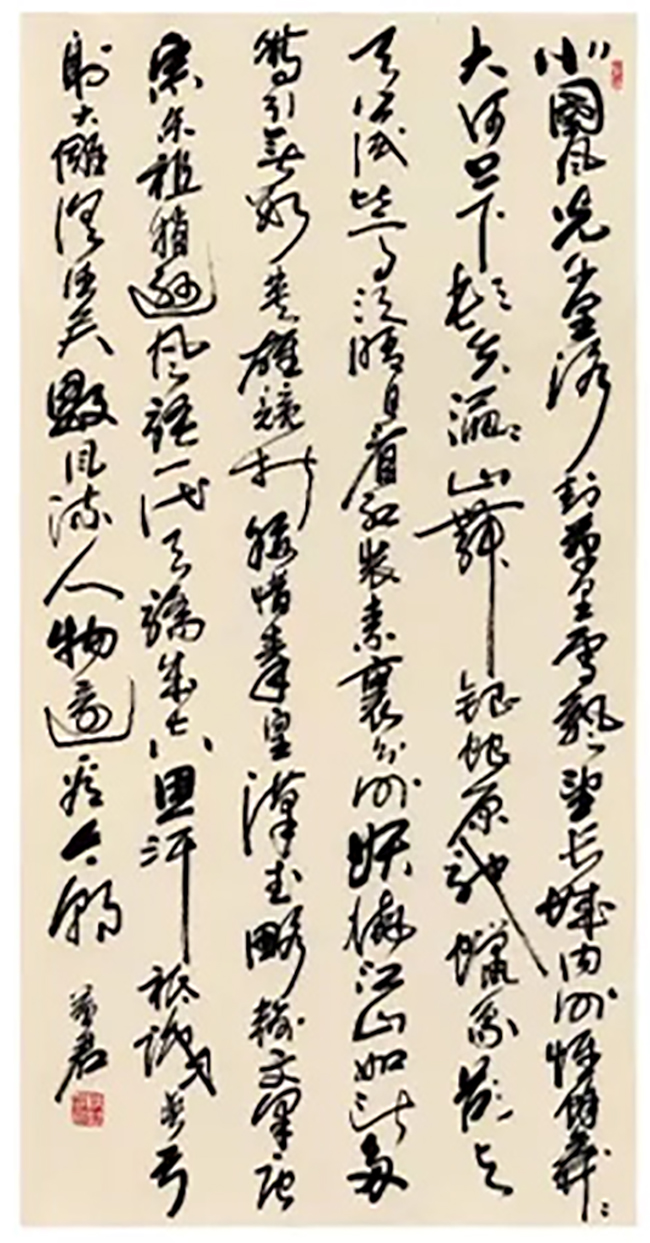 北國风光千里冰封萬里雪飘望长城内外惟餘莽莽
大河上下頓失滔滔山舞銀蛇原馳蠟象欲与
天公試比高須晴日看紅裝素裹分外妖嬈江山如此多
嬌引無數英雄競折腰惜秦皇漢武略輸文采唐
宗宋祖稍遜风騷一代天驕成吉思汗祗識彎弓
射大雕俱往矣數风流人物還看今朝